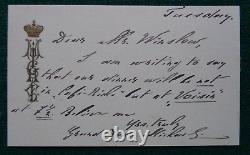 Tuesday.
Dear Mr. Winslow,
I am writing to say
that our dinner will be not
in "Café-Riche" but at "Voisin"
at 7½
Yours truly